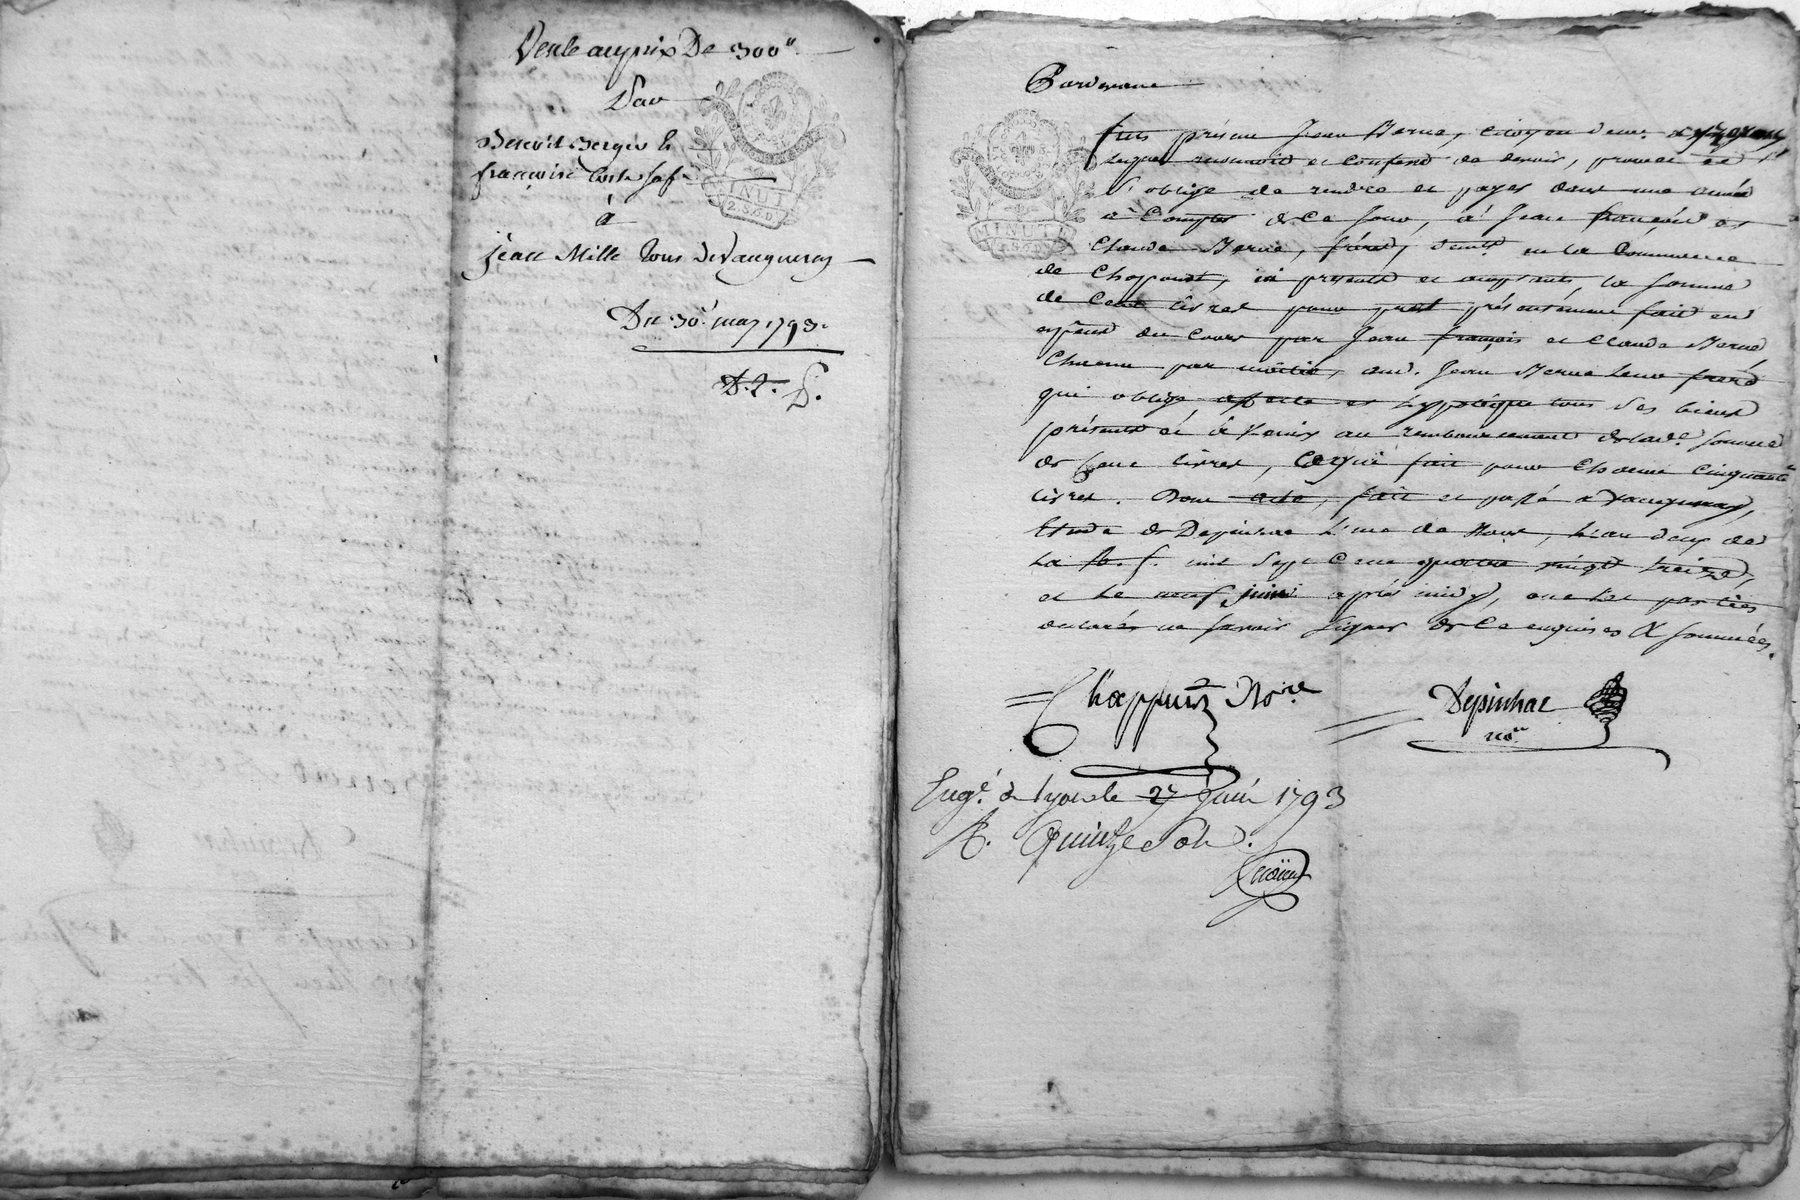 Vente au prix De 300#
Par
Benoît Berger &
françoise sa fe
à
jean Mille Tous De Vaugneray
Du 30 may 1793.
D. 2. S.
MINUTE
2.S.6.D
fut présent Jean Berne, citoyen demt à yzeron
lequel reconnoit et confesse de devoir, promet et
s'oblige de rendre et payer dans une année
à Compter de Ce Jour, à Jean françois et
Claude Berne, frères, demt en la Commune
de, ici présents et acceptants, la somme
de Cent livres pour prêt présentement fait en
espèces du Cours par Jean françois et Claude Berne
Chacun par moitié, aud. Jean Berne leur frère
qui oblige affecte et hypotèque tous ses biens
présents et à venir au remboursement de lade somme
de Cent livres, Ce qui fait pour Chacun Cinquante
livres. Dont acte, fait et passé à Vaugneray,
Etude de Depinhac l'un de Nous, l'an deux de
la R. f. mil Sept Cent quatre vingt treize,
et le neuf juin après midy, et les parties
déclaré ne savoir signer de Ce enquises & sommées.
MINUTE
2.S.6.D
Chappuis Nore
Depinhac
nore
Engé à Lyon le 27 Juin 1793
R. Quinze Sols.